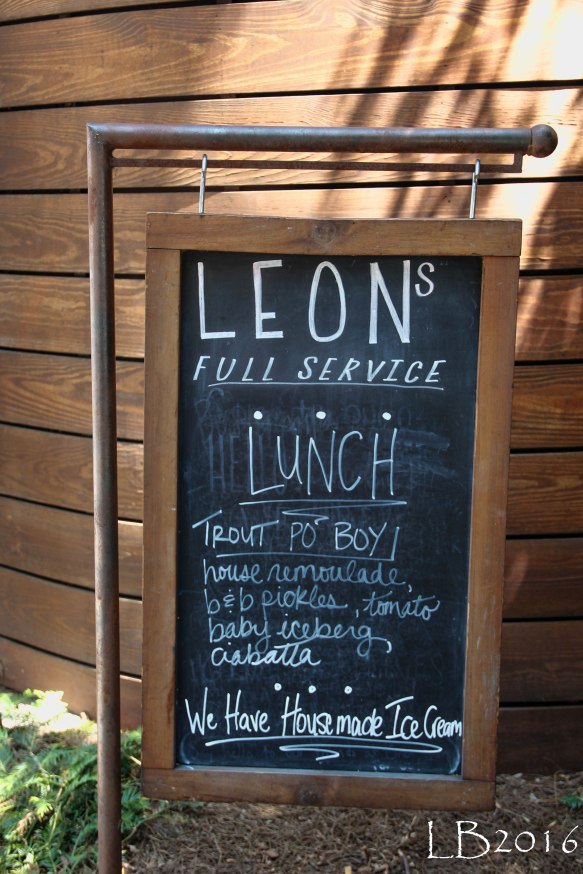 LEONS
FULL SERVICE
LUNCH
TROUT PO' BOY
house remoulade,
b&b pickles, tomato
baby iceberg,
ciabatta
We Have Housemade Ice Cream
LB2016